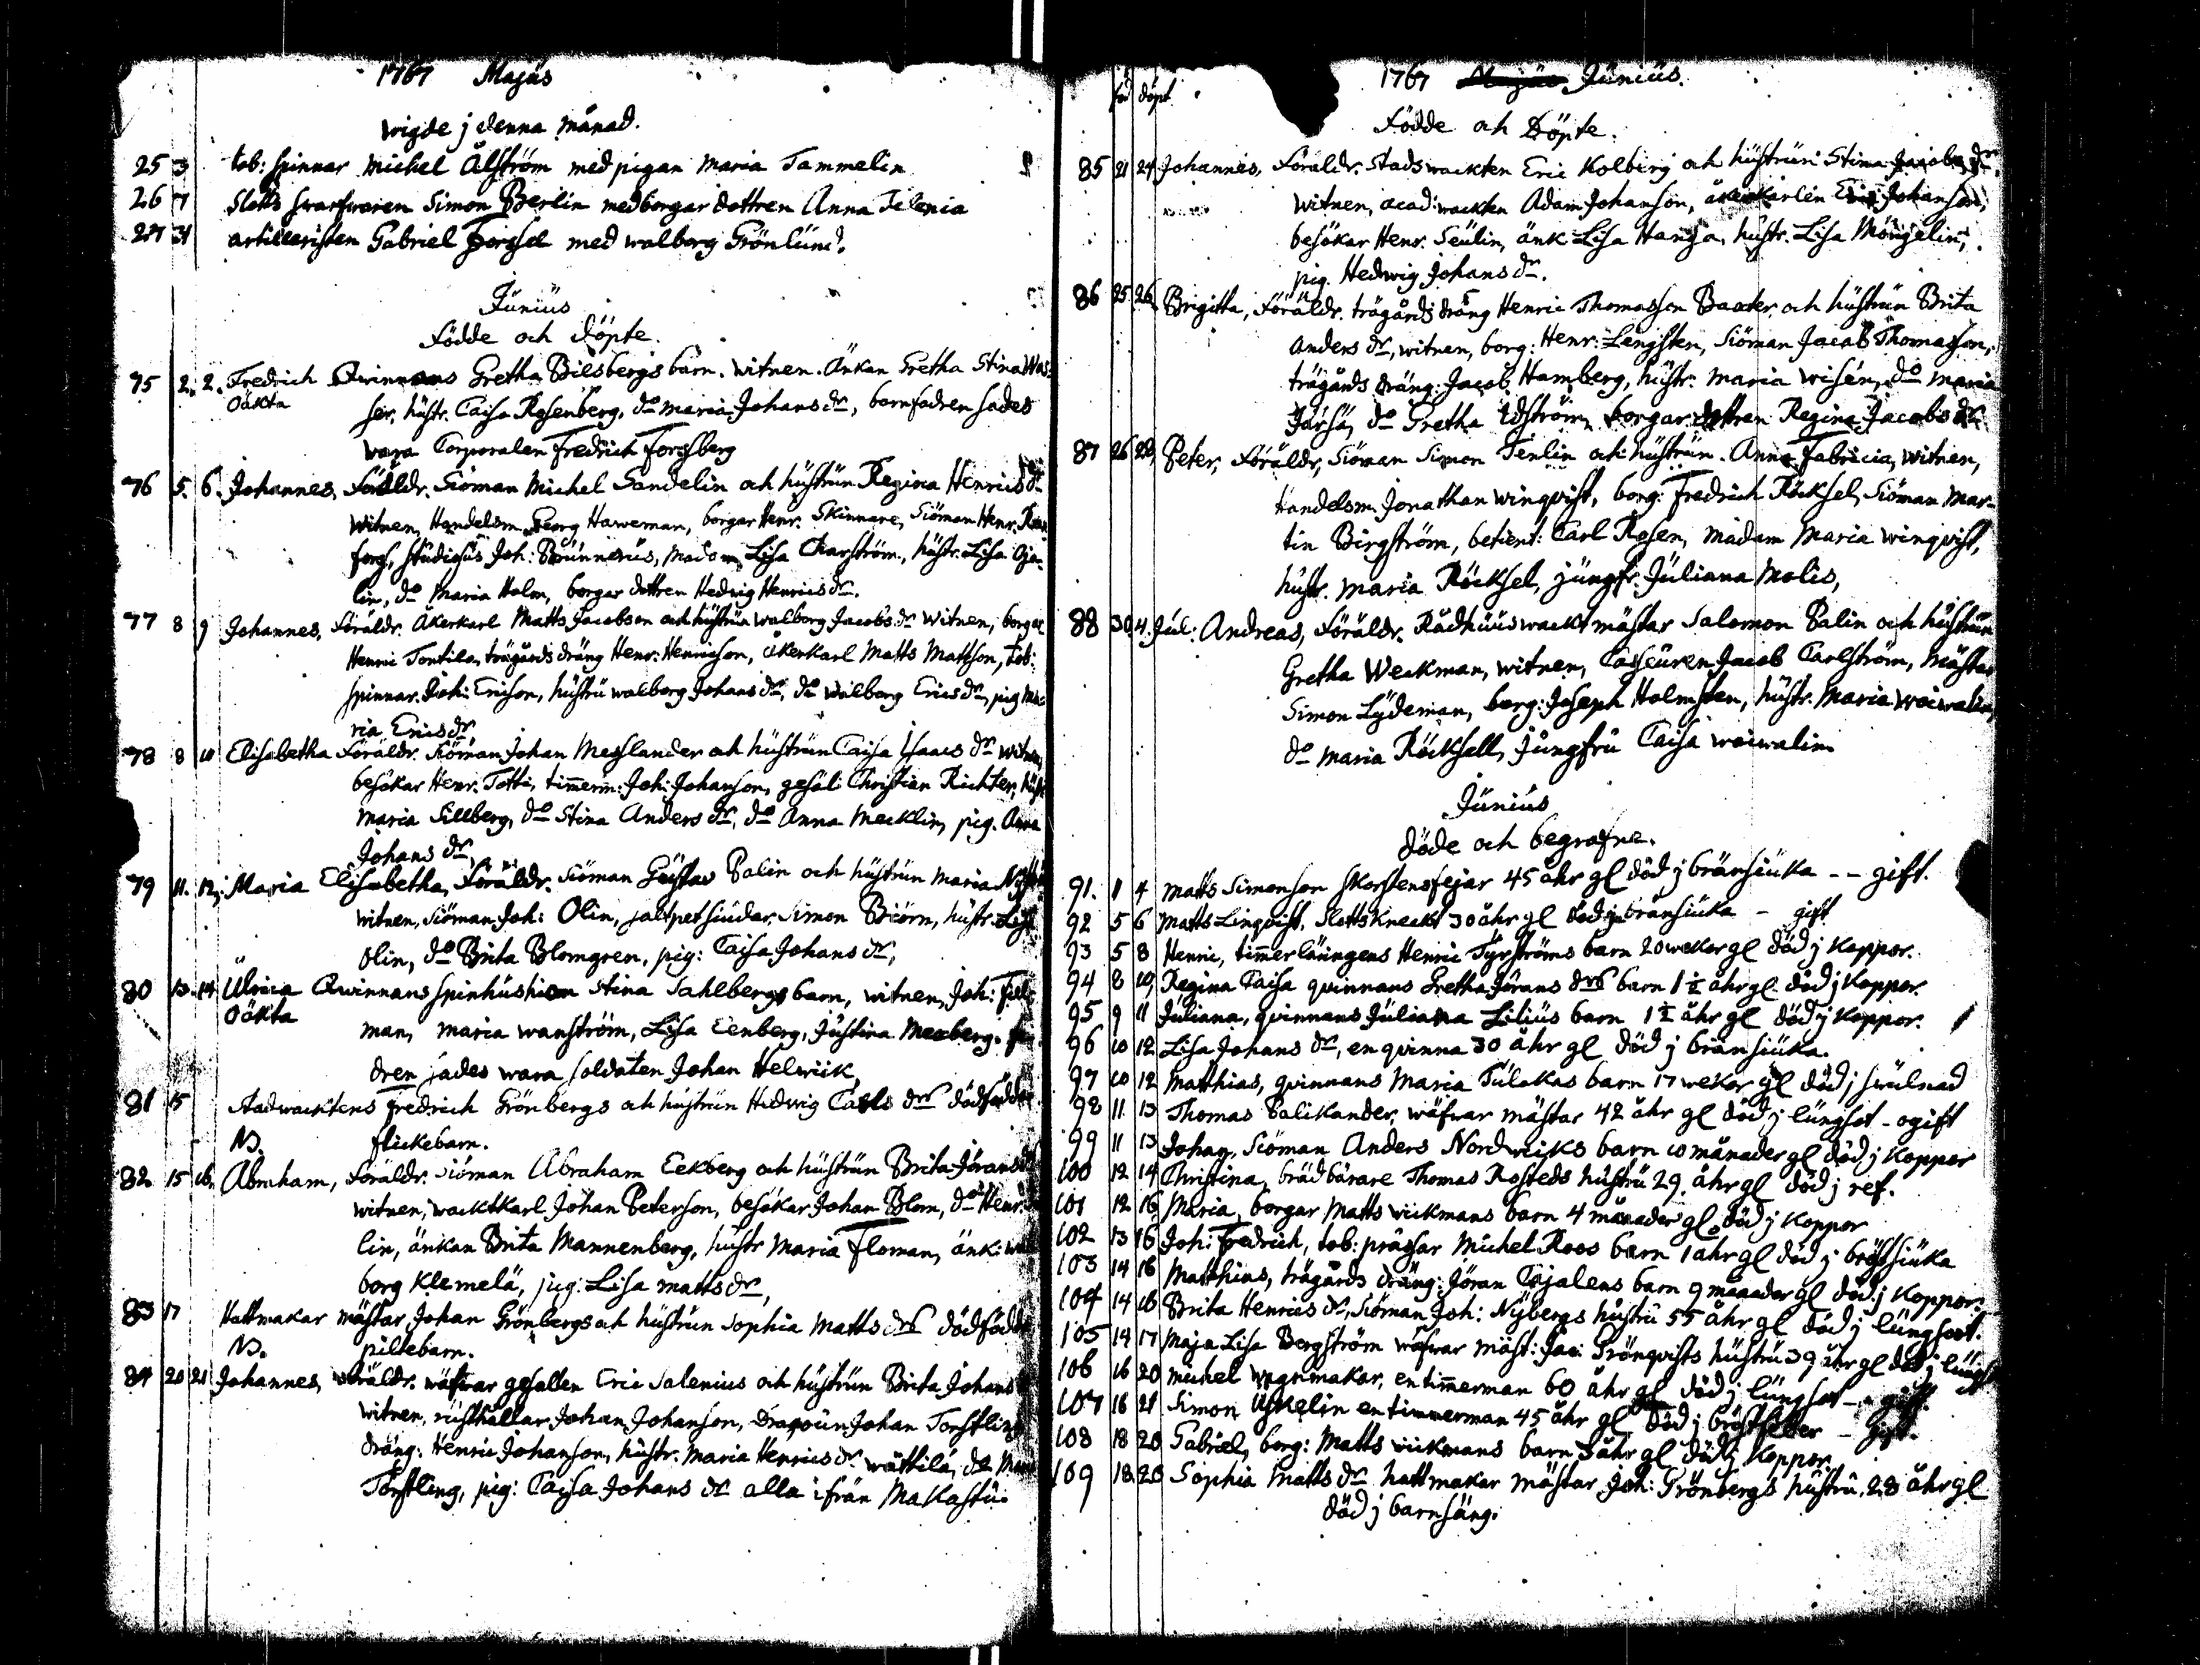 1767 Majus
wigde j denna månad.
25 3 tob: spinnar Michel Ålström med pigan Maria Tammelin
26 7 Slotts swarfwaren Simon Berlin med borgar dottren Anna Telenia
27 31 artilleristen Gabriel Forssel med walborg Grönlund.
Junius
Födde och Döpte.
75 2. 2. Fredrich Qwinnans Gretha Bilsbergs barn. witnen. Änkan Gretha Stina Was-
oäkta ser, hustr. Caisa Rosenberg, do Maria Johans dr, barnfadren sades
vara Corporalen Fredrich Forssberg
76 5. 6. Johannes, Föräldr. Siöman Michel Sandelin och hustrun Regina Henrics dr
witnen, Handelsm. Georg Haweman, borgar Henr. Skinnare, Siöman Henr.
fors, studiosus Joh: Brunnerus, Madam Lisa Charström, hustr. Lisa Oja-
lin, do Maria Holm, borgar dottren Hedvig Henrics dr.
77 8 9 Johannes, Föräldr. Åkerkarl Matts Jacobson och hustrun walborg Jacobs dr witnen, borgar
Henric Tontila, trägårds dräng Henr: Henricson, åkerkarl Matts Mattson, tob:
spinnar. Joh: Ericson, hustru walborg Johans dr, do walborg Erics dr, pig Ma-
ria Erics dr
78 8 10 Elisabetha Föräldr. Siöman Johan Messlander och hustrun Caisa Isaacs dr witnen,
besökar Henr. Totti, timerm: Joh: Johanson, gesäl Christian Richter, hustr
Maria Sillberg, do Stina Anders dr, do Anna Mecklin, pig. Anna
Johans dr,
79 11. 12, Maria Elisabetha, Föräldr. Siöman Gustav Palin och hustrun Maria
witnen, Siöman Joh: Olin, saltpetsiudar. Simon Biörn, hustr. Lisa
Olin, do Brita Blomgren, pig: Caisa Johans dr,
80 13. 14 Ulrica Qwinnans spinhushion Stina Sahlbergs barn, witnen, Joh:
oäkta man, Maria wanström, Lisa Eenberg, Justina Mexberg.
dren sades wara soldaten Johan Helwiik,
81 15 stadwacktens Fredrich Grönbergs och hustrun Hedvig Carls drs dödfödde
NB. flickebarn.
82 15 16, Abraham, Föräldr. Siöman Abraham Eekberg och hustrun Brita Jörans dr
witnen, wacktkarl Johan Peterson, besökar Johan Blom, do Henr.
lin, änkan Brita Mannenberg, hustr Maria Floman, änk: wal
borg Klemelä, pig. Lisa Matts dr,
83 17 Hattmakar mästar Johan Grönbergs och hustrun Sophia Matts drs dödfödde
NB. piltebarn.
84 20 21 Johannes, Föräldr. wäfwar gesällen Eric Salenius och hustrun Brita Johans
witnen, rusthållar Johan Johanson, Dragoun Johan Torstling
dräng: Henric Johanson, hustr. Maria Henrics dr wättilä, do
Torstling, pig: Caisa Johans dr alla ifrån Makastu.
fö döpt
1767 Majus Junius.
Födde och Döpte.
85 21 24 Johannes, Föräldr. Stadswackten Eric Kolberg och hustrun Stina Jacobs dr.
witnen, acad: wackten Adam Johanson, åkerkarlen Eric Johanson,
besökar Henr. Seulin, änk Lisa Hansa, hustr. Lisa Mongelin,
pig. Hedwig Johans dr.
86 25 26 Brigitta, Föräldr. trägårds dräng Henric Thomasson Baater och hustrun Brita
Anders dr, witnen, borg: Henr: Lengsten, Siöman Jacob Thomasson,
trägårds dräng. Jacob Hamberg, hustr: Maria wisén, do Maria
Järsä, do Gretha Edström, borgar dottren Regina Jacobs dr.
87 26 28, Peter, Föräldr, Siöman Simon Tenlin och hustrun. Anna Fabricia, witnen,
Handelsm. Jonathan winqvist, borg: Fredrich Röcksel, Siöman Mar-
tin Birgström, betient: Carl Rosen, Madam Maria winqvist,
hustr. Maria Röcksel, jungfr. Juliana Molis,
88 30 4. Jul. Andreas, Föräldr. Rådhuuswacktmästar Salomon Palin och hustrun
Gretha Weckman, witnen, Casseuren Jacob Carlström, Mästar
Simon Lydeman, borg: Joseph Holmsten, hustr. Maria woiwalin,
do Maria Röcksell, jungfru Caisa woiwalin
Junius
döde och begrafne.
91. 1 4 Matts Simonson skorstensfejar 45 åhr gl död j bränsiuka -- gift.
92 5 6 Matts Linqvist, Slotts Knecht 30 åhr gl död j bränsiuka - gift
93 5 8 Henric, timmerläningens Henric Tyrströms barn 20 wekor gl död j Koppor.
94 8 10, Regina Caisa qvinnans Gretha Jörans drs barn 1 1/2 åhr gl död j Koppor.
95 9 11 Juliana, qvinnans Juliana Lilius barn 1 1/2 åhr gl död j Koppor.
96 10 12 Lisa Johans dr, en qvinna 30 åhr gl död j bränsiuka.
97 10 12 Matthias, qvinnans Maria Tulakas barn 17 wekor gl död j swulnad
98 11 13 Thomas Palikander, wäfwar mästar 42 åhr gl död j lungsot - ogift
99 11 13 Johan, Siöman Anders Nordwiks barn 10 månader gl död j Koppor
100 12 14 Christina, brädbärare Thomas Rosteds hustru 29. åhr gl död j ref.
101 12 16 Maria, borgar Matts wickmans barn 4 månader gl död j Koppor
102 13 16 Joh: Fredrich, tob: prässar Michel Roos barn 1 åhr gl död j bröstsiuka
103 14 16 Matthias, trägårds dräng: Jöran Cajalens barn 9 månader gl död j Koppor.
104 14 16 Brita Henrics dr, Siöman Joh: Nybergs hustru 55 åhr gl död j lungsot.
105 14 17 Maja Lisa Bergström wäfwar mäst: Jac: Grönqvists hustru 39 åhr gl död j lungs
106 16 20 Michel wagnmakar, en timmerman 60 åhr gl död j lungsot - gift.
107 16 21 Simon Askelin en timmerman 45 åhr gl död j bröstfeber - gift.
108 18 20 Gabriel, borg: Matts wickmans barn 3 åhr gl död j Koppor
109 18 20 Sophia Matts dr hattmakar mästar Joh: Grönbergs hustru, 28 åhr gl
död j barnsäng.